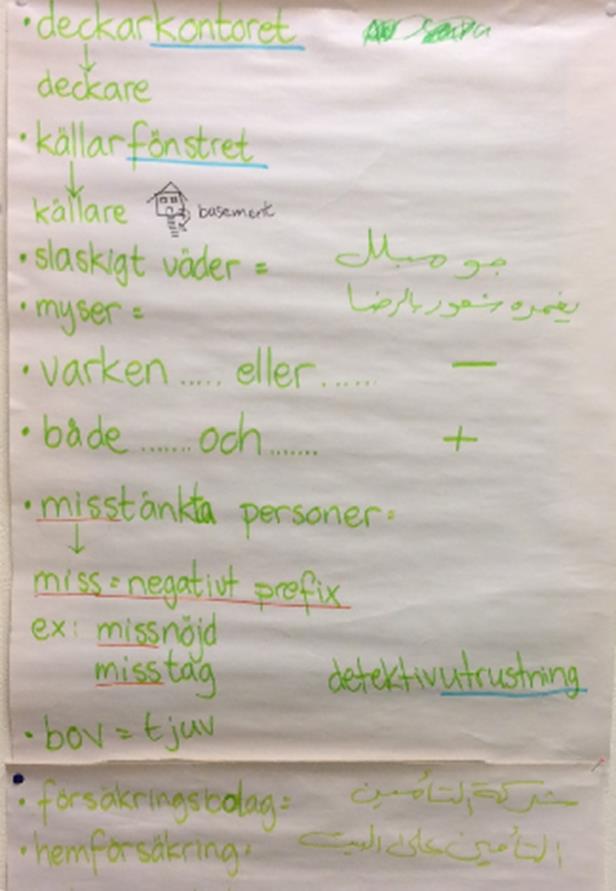 • deckarkontoret
↓
deckare
• källarfönstret
↓
källare basement
• slaskigt väder = جو مبلل
• myser = يغمره شعور بالرضا
• varken ..... eller ...... —
• både ....... och ....... +
• misstänkta personer:
↓
miss = negativt prefix
ex: missnöjd
misstag
detektivutrustning
• bov = tjuv
• försäkringsbolag = شركة التأمين
• hemförsäkring: التأمين على البيت